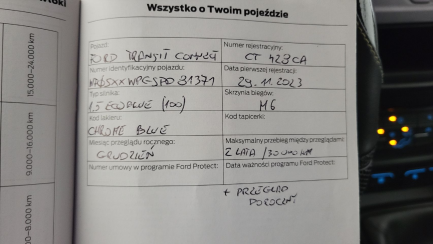 Wszystko o Twoim pojeździe
Pojazd:
FORD TRANSIT CONNECT
Numer rejestracyjny:
CT 428CA
Numer identyfikacyjny pojazdu:
Data pierwszej rejestracji:
29.11.2023
Typ silnika:
1.5 ECOBLUE (100)
Skrzynia biegów:
M6
Kod lakieru:
CHROME BLUE
Kod tapicerki:
Miesiąc przeglądu rocznego:
GRUDZIEŃ
Maksymalny przebieg między przeglądami:
2 LATA / 30 000 KM
Numer umowy w programie Ford Protect:
Data ważności programu Ford Protect:
+ PRZEGLĄD
15.000–24.000 km
9.000–16.000 km